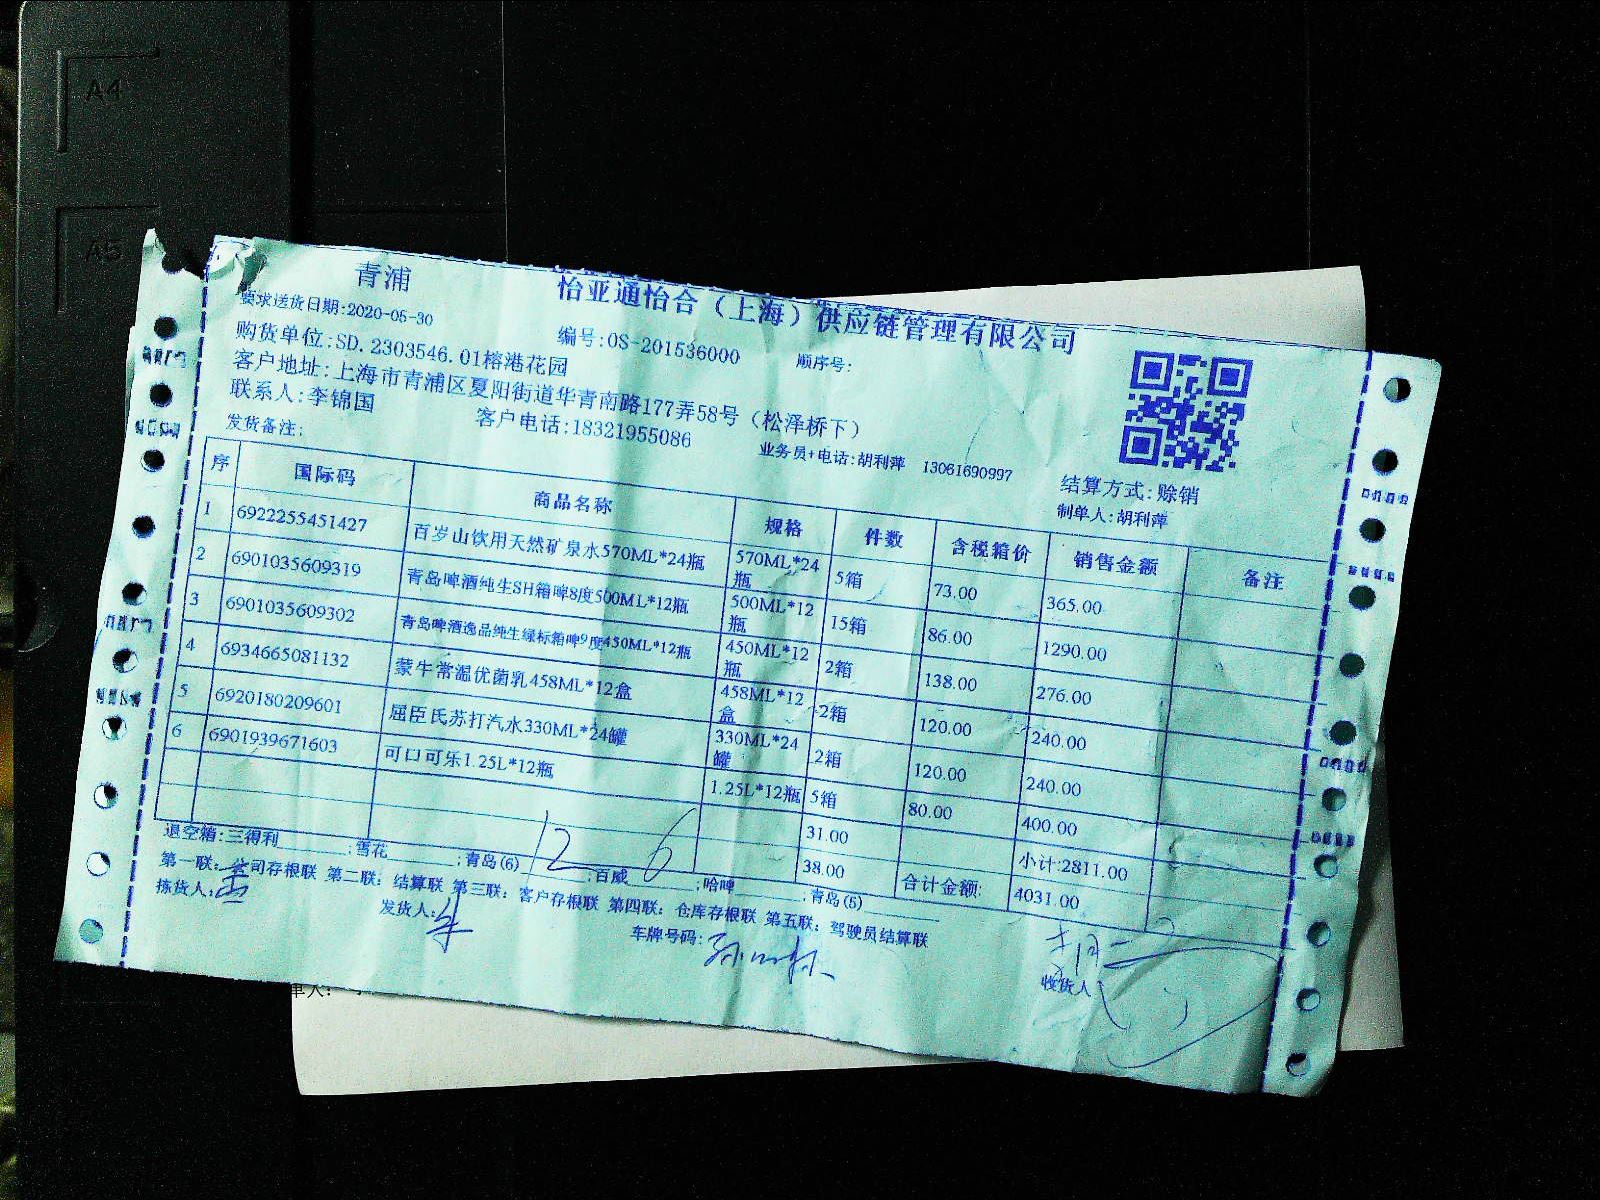 A4
A5
青浦
怡亚通怡合（上海）供应链管理有限公司
要求送货日期:2020-05-30
编号:OS-201536000
顺序号:
购货单位:SD.2303546.01榕港花园
客户地址:上海市青浦区夏阳街道华青南路177弄58号（松泽桥下）
联系人:李锦国
客户电话:18321955086
业务员+电话:胡利萍 13061690997
结算方式:赊销
发货备注:
制单人:胡利萍
序 国际码 商品名称 规格 件数 含税箱价 销售金额 备注
1 6922255451427 百岁山饮用天然矿泉水570ML*24瓶 570ML*24瓶 5箱 73.00 365.00
2 6901035609319 青岛啤酒纯生SH箱啤8度500ML*12瓶 500ML*12瓶 15箱 86.00 1290.00
3 6901035609302 青岛啤酒逸品纯生绿标箱啤9度450ML*12瓶 450ML*12瓶 2箱 138.00 276.00
4 6934665081132 蒙牛常温优菌乳458ML*12盒 458ML*12盒 2箱 120.00 240.00
5 6920180209601 屈臣氏苏打汽水330ML*24罐 330ML*24罐 2箱 120.00 240.00
6 6901939671603 可口可乐1.25L*12瓶 1.25L*12瓶 5箱 80.00 400.00
31.00 小计:2811.00
38.00 合计金额: 4031.00
退空箱:三得利 ;雪花 ;青岛(6) 12 ;百威 6 ;哈啤 ;青岛(5)
第一联：公司存根联 第二联：结算联 第三联：客户存根联 第四联：仓库存根联 第五联：驾驶员结算联
拣货人:
发货人:
车牌号码:
收货人
单人: